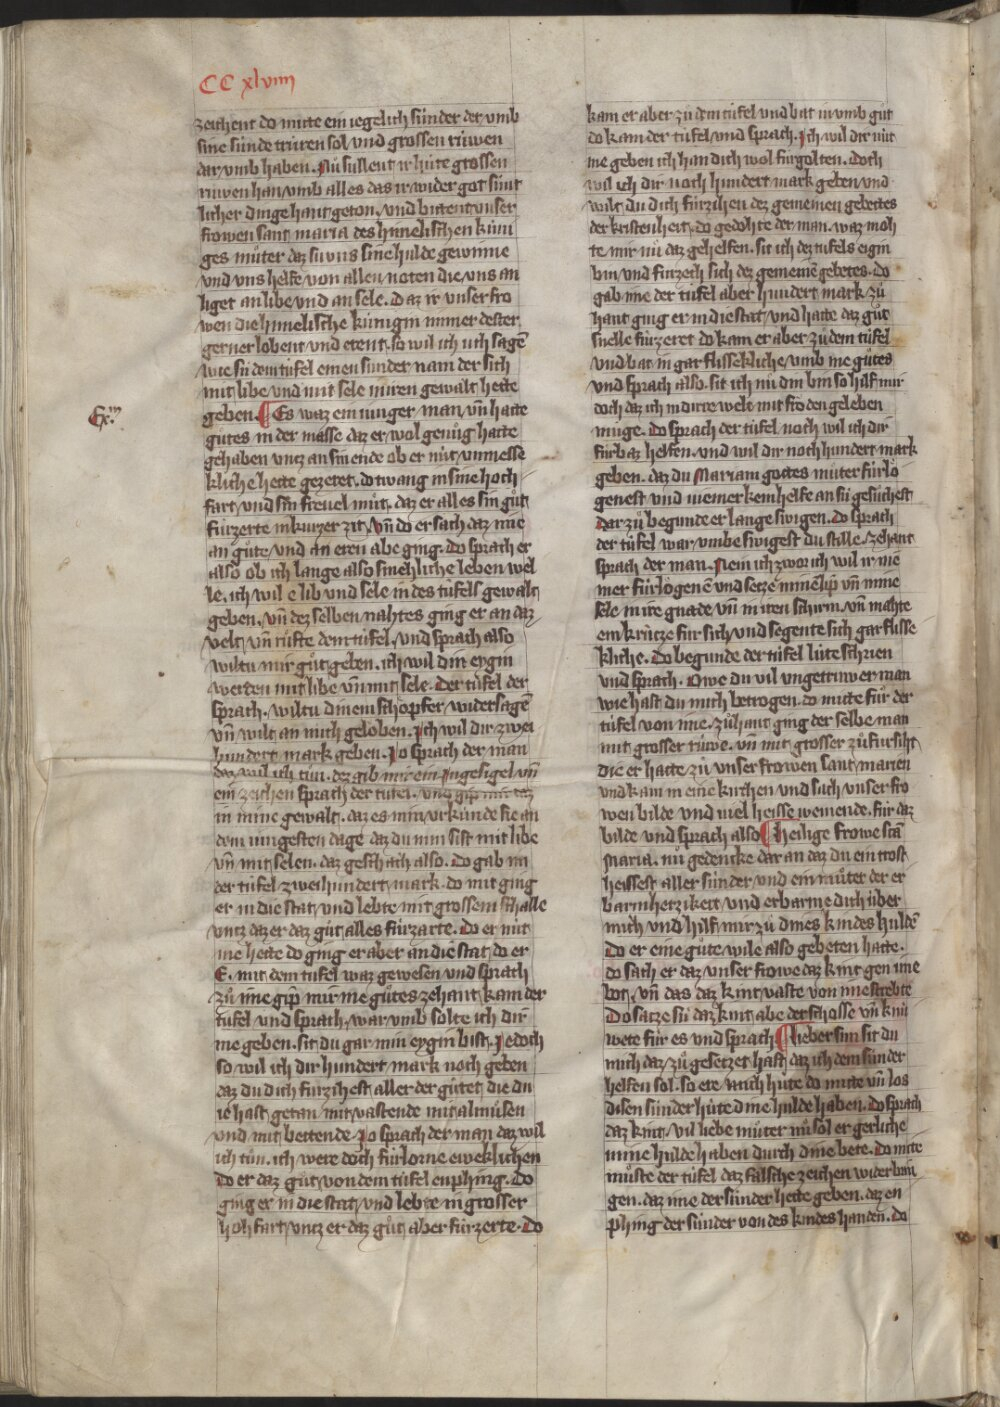 CC xlviiij
zeichent do mitte ein iegelich sünder der vmb
sine sünde truren sol vnd grossen rüwen
dar vmb haben. Nü sullent ir hüte grossen
rüwen han vmb alles das ir wider got sünt
licher dinge hant geton. vnd bittent vnser
frowen sant maria des himelischen küni
ges můter daz sü vns sine hulde gewinne
vnd vns helfe von allen noten die vns an
liget an libe vnd an sele. daz ir vnser fro
wen die himelische künigin immer dester
gerner lobent vnd erent. so wil ich üch sagē
wie sü dem tüfel einen sünder nam der sich
mit libe vnd mit sele in iren gewalt hette
Exm
geben. Es waz ein iunger man. vn̄ hatte
gůtes in der masse daz er wol genůg hatte
gehaben vntz an sin ende ob er nüt vnmesse
kliche hette gezeret. do twang in sine hoch
fart vnd sin freuel můt. daz er alles sin gůt
fürzerte in kurzer zit. vn̄ do er sach daz ime
an gůte vnd an eren abe ging. do sprach er
also ob ich lange also sinehliche leben wel
le. ich wil e lib vnd sele in des tüfels gewalt
geben. vn̄ dez selben nahtes ging er an daz
velt vn̄ rüfte dem tüfel. vnd sprach also
wiltu mir gůt geben. ich wil din eygin
werden mit libe vn̄ mit sele. Der tüfel der
sprach. wiltu dinem schöpfer widersagē
vn̄ wilt an mich geloben. Ich wil dir zwei
hundert mark geben. Jo sprach der man
daz wil ich tůn. dez gib mir ein Ingesigel vn̄
ein zeichen sprach der tüfel. vnd gip mir daz
in mine gewalt. daz es min vrkünde sie an
dem iungesten dage daz du min sist mit libe
vn̄ mit selen. daz geschach also. do gab im
der tüfel zweihundert mark. do mit ging
er in die stat vnd lebte mit grossem schalle
vntz daz er daz gůt alles fürzarte. Do er nit
me hette do ging er aber an die stat do er
E. mit dem tüfel waz gewesen vnd sprach
zů ime gip mir me gůtes zehant kam der
tüfel vnd sprach. war vmb solte ich dir
me geben. sit du gar min eygin bist. Jedoch
so wil ich dir hundert mark noch geben
daz du dich fürzihest aller der gůtet die du
ie hast getan mit vastende mit almůsen
vnd mit bettende. Jo sprach der man daz wil
ich tůn. ich were doch fürlorne eweklichen
Do er daz gůt von dem tüfel enphing. Do
ging er in die stat vnd lebte in grosser
hoh fart vntz er daz gůt aber fürzerte. Do
kam er aber zů dem tüfel vnd bat in vmb gůt
do kam der tüfel vnd sprach. Ich wil dir nüt
me geben ich han dich wol fürgolten. doch
wil ich dir noch hundert mark geben vnd
wilt du dich fürzihen dez gemeinen gebettes
der kristenheit. do gedohte der man. waz moh
te mir nů daz gehelfen. sit ich dez tüfels eigin
bin vnd fürzech sich dez gemeinē gebetes. do
gab ime der tüfel aber hundert mark zů
hant ging er in die stat vnd hatte daz gůt
snelle fürzeret do kam er aber zů dem tüfel
vnd bat in gar flisseklichē vmb me gůtes
vnd sprach also. sit ich nů din bin so hilf mir
doch daz ich in dirre welt mit froden geleben
müge. do sprach der tüfel noch wil ich dir
fürbaz helfen. vnd wil dir noch hundert mark
geben. daz du Mariam gottes můter fürlö
genest vnd niemer kein helfe an sü gesůchest
Dar zů begunde er lange swigen. do sprach
der tüfel war vmbe swigest du stille. zehant
sprach der man. Nein ich zwor ich wil ir niē
mer fürlögenē vnd setze minē lip vn̄ mine
sele in ire gnade vn̄ in iren schirm. vn̄ mahte
ein krütze für sich vnd segente sich gar flisse
kliche. do begunde der tüfel lüte schrien
vnd sprach. Owe du vil vngetrüwer man
wie hast du mich betrogen. do mitte für der
tüfel von ime. zůhant ging der selbe man
mit grosser rüwe. vn̄ mit grosser zůfürsiht
die er hatte zů vnser frowen sant marien
vnd kam in eine kirchen vnd sach vnser fro
wen bilde vnd viel heisse weinende. für daz
bilde vnd sprach also Heilige frowe sc̄a
Maria. nů gedencke dar an daz du ein trost
heissest aller sünder vnd ein můter der er
barmhetzikeit vnd erbarme dich über
mich vnd hilf mir zů dines kindes huldē
Do er eine gůte wile also gebeten hatte.
do sach er daz vnser frowe daz kint gen ime
bot. vn̄ das daz kint vaste von ime strebte
Do satze sü daz kint abe der schosse vn̄ knü
wete für es vnd sprach Lieber sun sit du
mich dar zů gesetzet hast daz ich dem sünder
helfen sol. so ere mich hüte do mitte vn̄ los
disen sünder hüte dine hulde haben. do sprach
daz kint. vil liebe můter nů sol er gerliche
mine hulde haben durch dine bete. do mitte
můste der tüfel daz falsche zeichen widerbrin
gen. daz ime der sünder hette geben. daz en
phing der sünder von des kindes handen. do